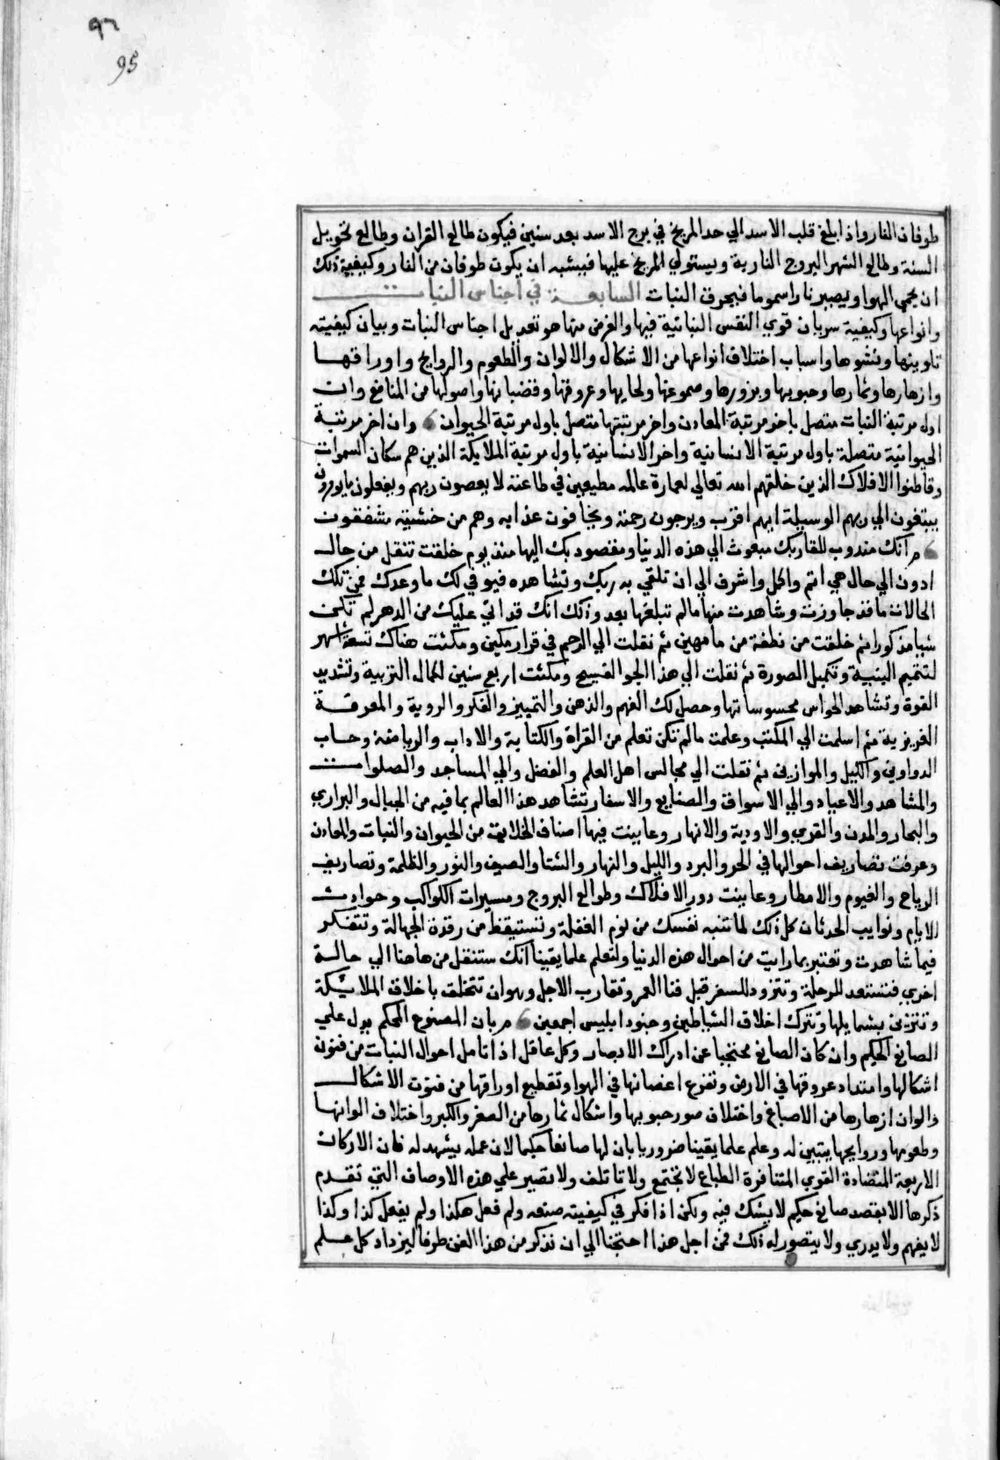 ٩٣
95
طوفان النار واذا بلغ قلب الاسد الي حد المريخ في برج الاسد بعد سنين فيكون طالع القران وطالع تحويل
السنة وطالع الشهر البروج النارية ويستولي المريخ عليها فيشبه ان يكون طوفان من النار وكيفية ذلك
ان يحمي الهوا ويصير نارا سموما فيحرق النبات السابعة في اجناس النبات
وانواعها وكيفية سريان قوي النفس النباتية فيها والغرض منها هو تعديل اجناس النبات وبيان كيفية
تكوينها ونشوها واسباب اختلاف انواعها من الاشكال والالوان والطعوم والروايح واوراقها
وازهارها وثمارها وحبوبها وبزورها وصموغها ولحايها وعروقها وقضبانها واصولها من المنافع وان
اول مرتبة النبات متصل باخر مرتبة المعادن واخر مرتبتها متصل باول مرتبة الحيوان وان اخر مرتبة
الحيوانية متصلة باول مرتبة الانسانية واخر الانسانية باول مرتبة الملايكة الذين هم سكان السموات
وقاطنوا الافلاك الذين خلقهم الله تعالي لعمارة عالمه مطيعين في طاعته لا يعصون ربهم ويفعلون ما يومرون
يبتغون الي ربهم الوسيلة ايهم اقرب ويرجون رحمته ويخافون عذابه وهم من خشيته مشفقون
م انك مندوب للقا ربك مبعوث الي هذه الدنيا ومقصود بك اليها منذ يوم خلقت تنقل من حال
ادون الي حال هي اتم واكمل واشرف الي ان تلقي به ربك وتشاهده فيوفي لك ما وعدك فمن تلك
الحالات ما قد جاوزت وشاهدت منها مالم تبلغها بعد وذلك انك قد اتي عليك من الدهر لم تكن
شيا مذكورا ثم خلقت من نطفة من ما مهين ثم نقلت الي الرحم في قرار مكين ومكثت هناك تسعة اشهر
لتتميم البنية وتكميل الصورة ثم نقلت الي هذا الجو الفسيح ومكثت اربع سنين لكمال التربية وتشديد
القوة وتشاهد الحواس محسوساتها وحصل لك الفهم والذهن والتمييز والفكر والروية والمعرفة
الغريزية ثم اسلمت الي المكتب وعلمت مالم تكن تعلم من القراة والكتابة والاداب والرياضة وحساب
الدواوين والكيل والموازين ثم نقلت الي مجالس اهل العلم والفضل والي المساجد والصلوات
والمشاهد والاعياد والي الاسواق والصنايع والاسفار تشاهد هذا العالم بما فيه من الجبال والبراري
والبحار والمدن والقري والاودية والانهار وعاينت فيها اصناف الخلايق من الحيوان والنبات والمعادن
وعرفت تصاريف احوالها في الحر والبرد والليل والنهار والشتا والصيف والنور والظلمة وتصاريف
الرياح والغيوم والامطار وعاينت دور الافلاك وطوالع البروج ومسيرات الكواكب وحوادث
الايام ونوايب الحدثان كل ذلك لما تنبه نفسك من نوم الغفلة وتستيقظ من رقدة الجهالة وتتفكر
فيما شاهدت وتعتبر بما رايت من احوال هذه الدنيا ولتعلم علما يقينا انك ستنقل من هاهنا الي حالة
اخري فتستعد للرحلة وتتزود للسفر قبل فنا العمر وتقارب الاجل وهوان تتخلق باخلاق الملايكة
وتتزين بشمايلها وتترك اخلاق الشياطين وجنود ابليس اجمعين م بان المصنوع المحكم يدل علي
الصانع الحكيم وان كان الصانع محتجبا عن ادراك الابصار وكل عاقل اذا تامل احوال النبات من فنون
اشكالها وامتداد عروقها في الارض وتفرع اغصانها في الهوا وتقطيع اوراقها من فنون الاشكال
والوان ازهارها من الاصباغ واختلاف صور حبوبها واشكال ثمارها من الصغر والكبر واختلاف الوانها
وطعومها وروايحها يتبين له وعلم علما يقينا ضروريا بان لها صانعا حكيما لان عمله يشهد له فان الاركان
الاربعة المتضادة القوي المتنافرة الطباع لا تجتمع ولا تاتلف ولا تصير علي هذه الاوصاف التي تقدم
ذكرها الا بقصد صانع حكيم لا يشك فيه ولكن اذا فكر في كيفيته صنعه ولم فعل هكذا ولم يفعل كذا وكذا
لا يفهم ولا يدري ولا يتصور له ذلك فمن اجل هذا احتجنا الي ان نذكر من هذا الفن طرفا ليزداد كل علم